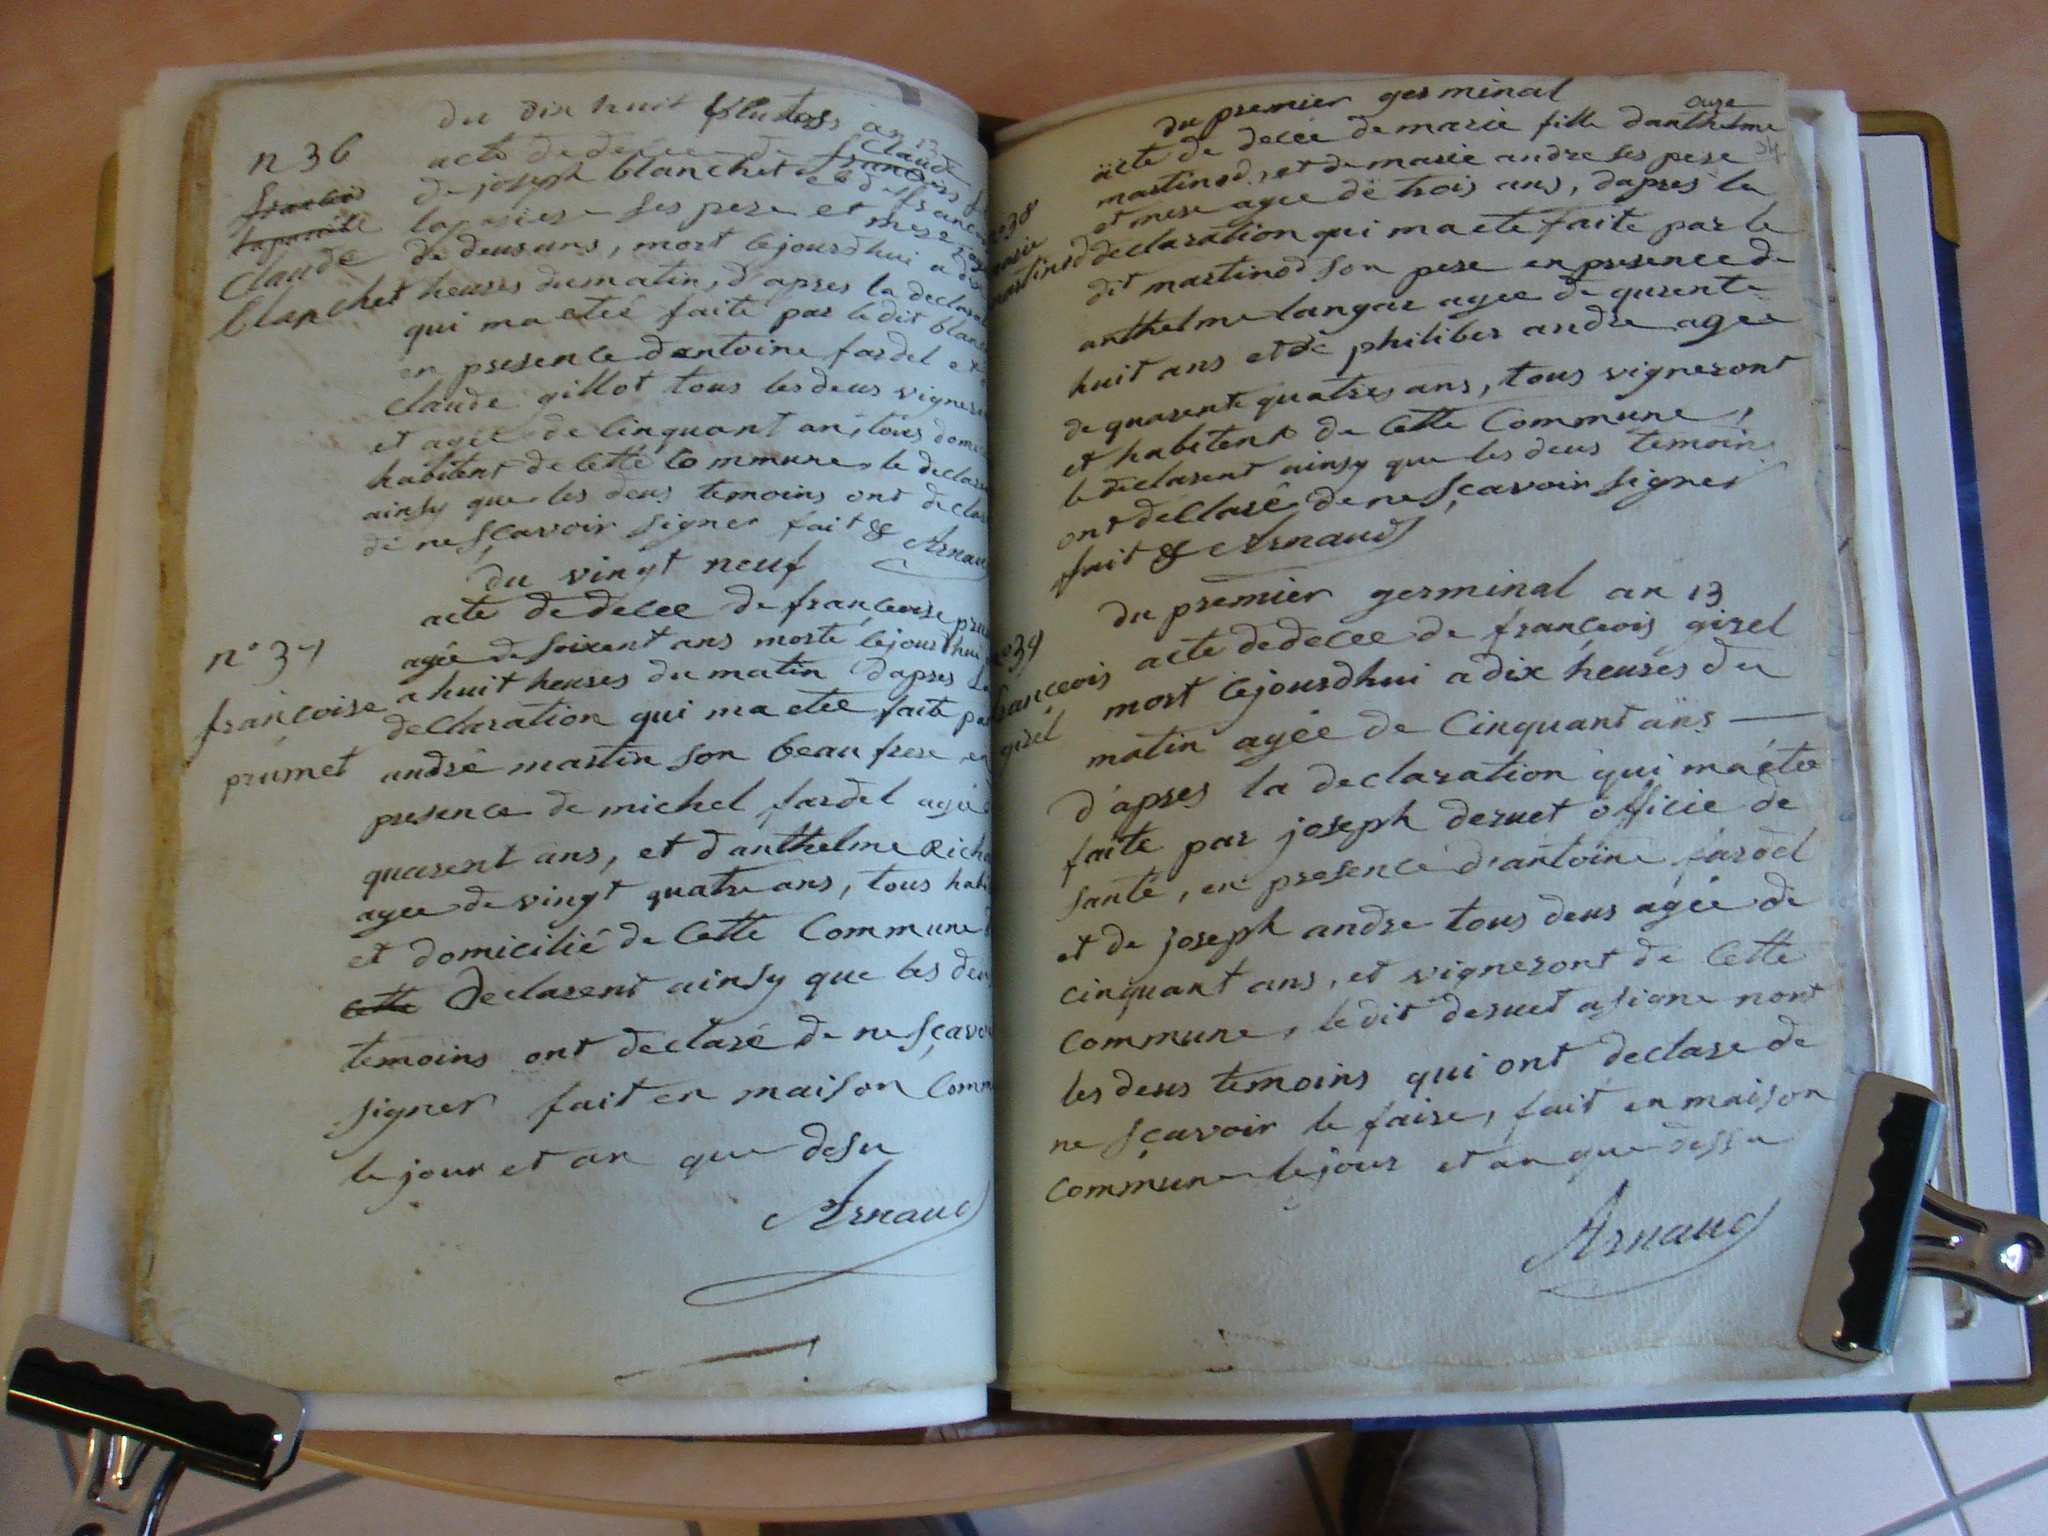 du dix huit pluvos, an 13
n 36
acte de decee de françois Claude
françois
de joseph blanchet et de fran
laparille
laparies ses pere et mere
Claude
de deus ans, mort cejourdhui a dis
blanchet
heures du matin, d'apres la declarat
qui ma eteé faite par le dit blan
en presence dantoine fardel et
claude gillot tous les deus vignero
et agée de cinquant an, tous domi
habitent de cette commune, le declare
ainsy que les deus temoins ont declar
de ne sçavoir signer fait & Arnaud
du vingt neuf
acte de decee de françoise pru
n° 37
agée de soixent ans morte cejourdhui
françoise
a huit heures du matin d'apres la
prumet
declaration qui ma etee faite par
andré martin son beau frere en
presence de michel fardel agée
quarent ans, et d'anthelme Rich
agee de vingt quatre ans, tous habi
et domicilié de cette Commune
cette declarent ainsy que les deu
temoins ont declaré de ne sçavoi
signer fait en maison Comm
le jour et an que desu
Arnaud
du premier germinal
acte de decée de marie fille danthelme
martinod, et de marie andre ses pere
n°38
et mere agee de trois ans, dapres la
marie
martinod
declaration qui ma ete faite par le
dit martinod son pere en presence de
anthelme langar agee de qurente
huit ans et de philiber andre agee
de quarente quatres ans, tous vigneront
et habitent de cette Commune,
le declarent ainsy que les deus temoin
ont declaré de ne sçavoir signer
fait & Arnaud
du premier germinal an 13
n°39
acte de decee de françois girel
françois
mort cejourdhui a dix heures du
girel
matin agée de Cinquant ans
d'apres la declaration qui ma étee
faite par joseph deruet officie de
santé, en presence d'antoine fardel
et de joseph andre tous deus agée de
cinquant ans, et vigneront de cette
commune, le dit deruet a signe nont
les deus temoins qui ont declare de
ne sçavoir le faire, fait en maison
commune le jour et an que dessu
Arnaud